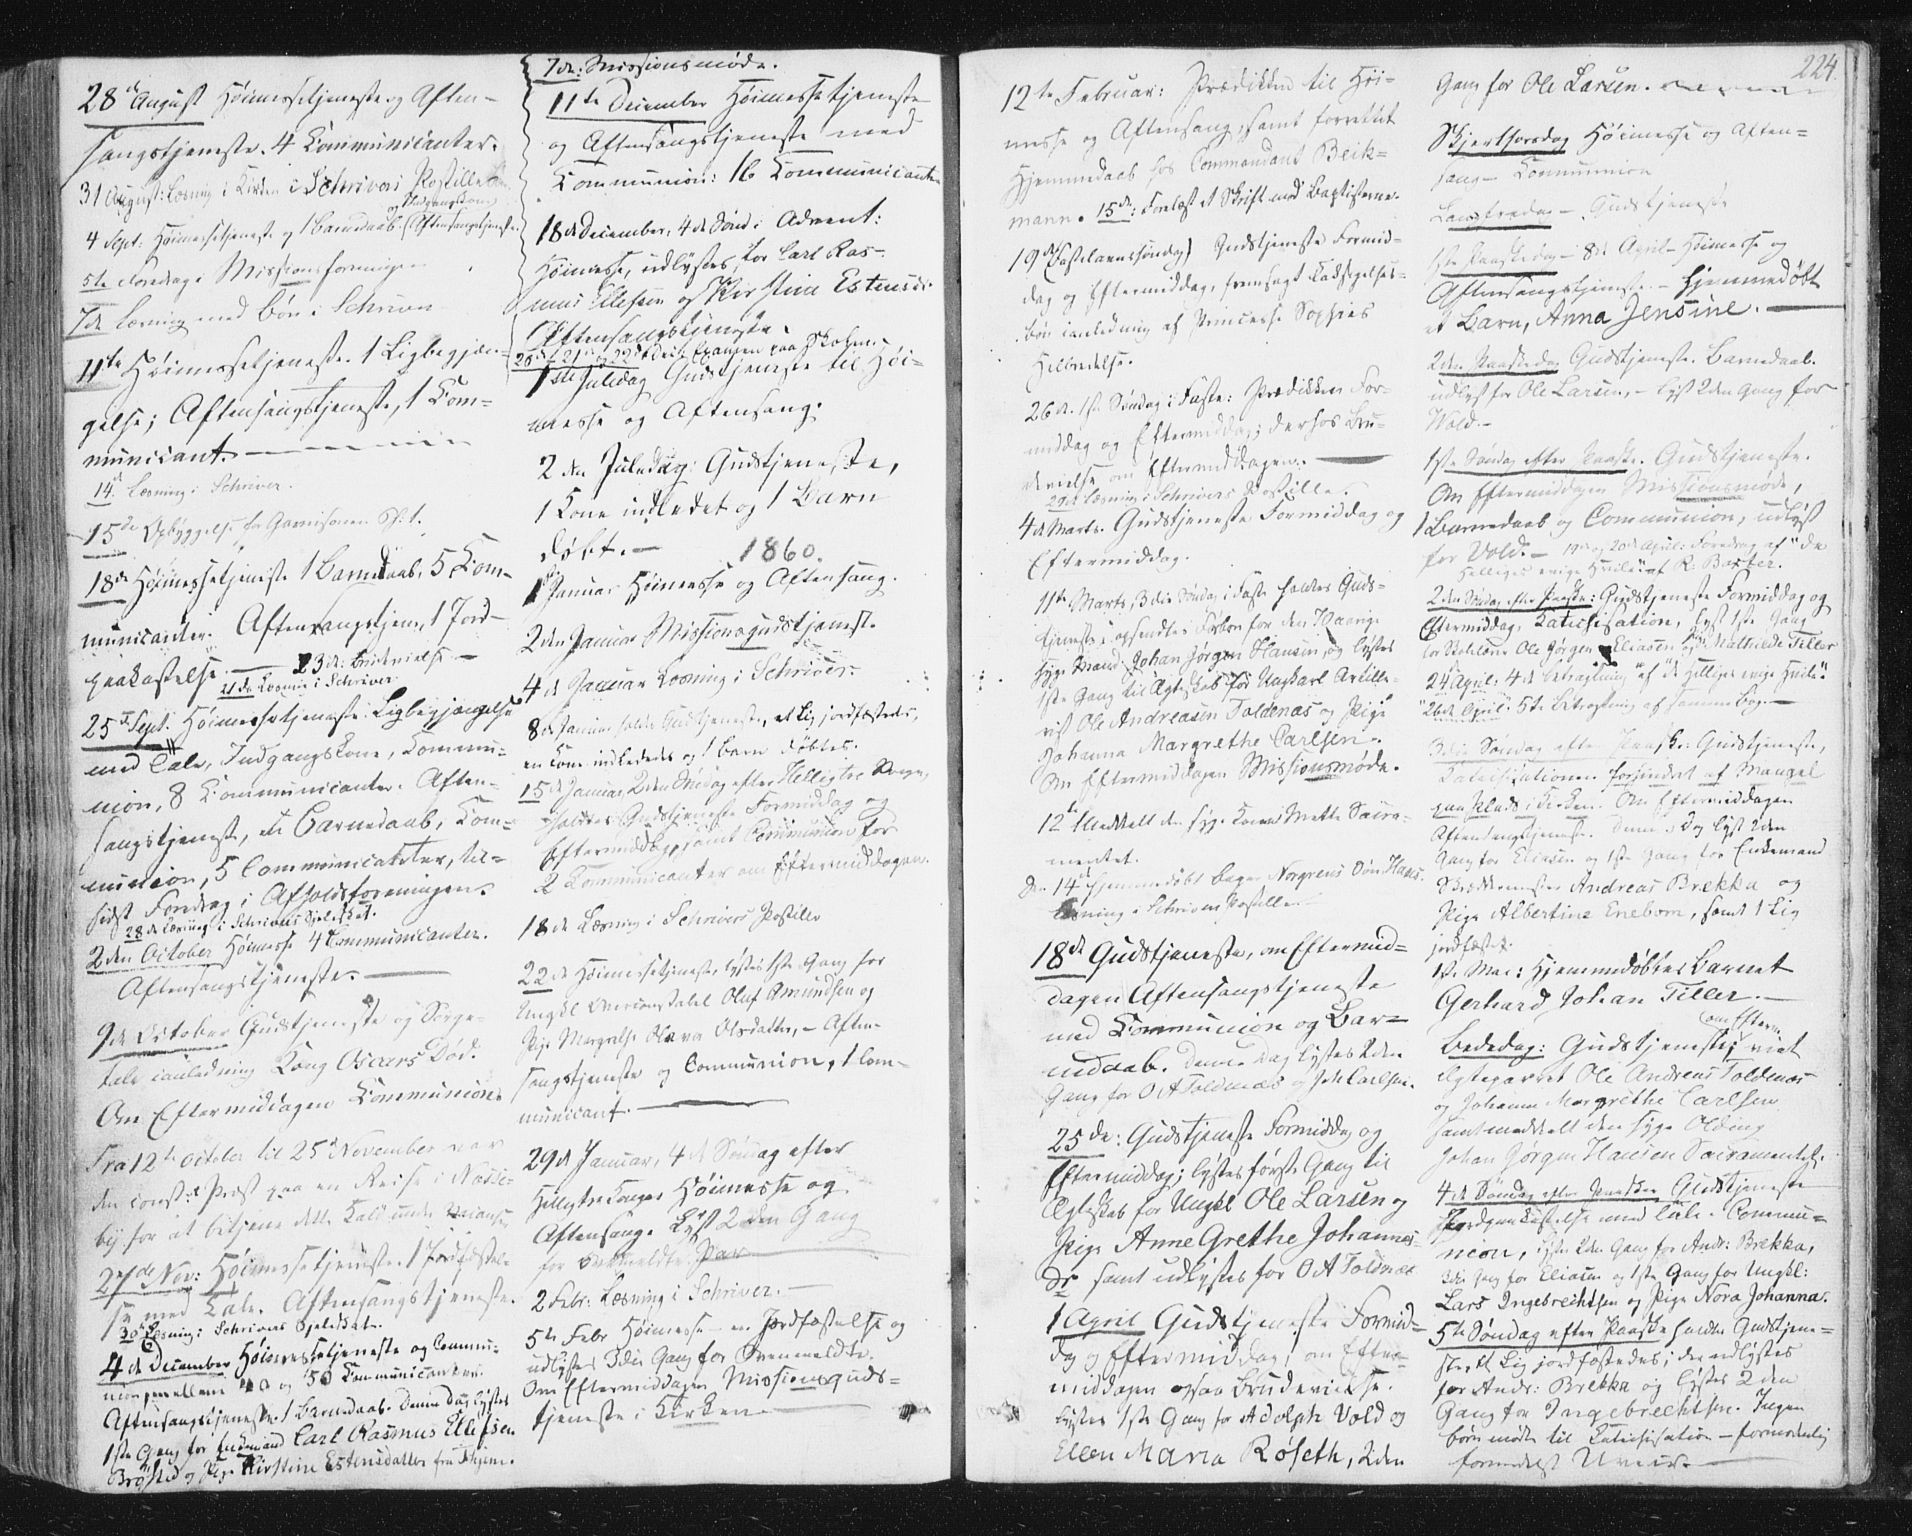 28de August Høimessetjeneste og Aften-
sangstjeneste. 4 Communicanter.
31 August: Læsning i Kirken i Schrivers Postille
4 Sept: Høimessetjeneste og 1 Barnedaab. Aftensangstjeneste.
5te Foredrag i Missionsforeningen
7de Læsning med Bøn i Schriver
11te Høimessetjeneste. 1 Ligbegjæn-
gelse; Aftensangstjeneste, 1 Com-
municant.
14de Læsning i Schriver.
15de Opbyggelse for Garnisonen
18de Høimessetjeneste 1 Barnedaab, 5 Com-
municanter. Aftensangstjen, 1 Jord-
paakastelse. — 23de: Brudevielse —
21de Læsning i Schriver
25de Sept. Høimessetjeneste. Ligbegjængelse
med Tale, Indgangskone, Commu-
nion, 8 Communicanter. Aften-
sangstjeneste, et Barnedaab, Com-
munion, 5 Communicanter, til-
sidst Foredrag i Afholdsforeningen.
28de Læsning i Schrivers Sjeleskat.
2den October Høimesse 4 Communicanter.
Aftensangstjeneste.
9de October Gudstjeneste og Sørge-
tale i anledning Kong Oscars Død.
Om Eftermiddagen Communion.
Fra 12te October til 25de November var
den const: Præst paa en Reise i
for at betjene dette Kald under
27de Nov: Høimessetjeneste. 1 Jordfæstel-
se med Tale. Aftensangstjeneste.
30te Læsning i Schrivers Sjeleskat.
4de December Høimessetjeneste og Commu-
nion 50 Communicanter.
Aftensangstjeneste. 1 Barnedaab. Denne Dag lystes
1ste Gang for Enkemand Carl Rasmus Ellefsen
og Pige Kirstine Estensdatter fra
7de: Missionsmøde.
11te December Høimessetjeneste
og Aftensangstjeneste med
Communion: 16 Communicanter
18de December, 4de Sønd: Advent:
Høimesse, udlystes for Carl Ras-
mus Ellefsen og Kirstine Estensdr
Aftensangstjeneste.
20de, 21de og 22de Decbr Examen paa Skolen.
1ste Juledag Gudstjeneste til Høi-
messe og Aftensang.
2den Juledag: Gudstjeneste,
1 Kone indledet og 1 Barn
døbt. —
1860.
1 Januar Høimesse og Aftensang.
2den Januar Missionsgudstjeneste
4de Januar Læsning i Schriver.
8de Januar holdt Gudstjeneste, et Lig jordfæstedes,
en Kone indlededes og 1 Barn døbtes.
15de Januar, 2den Søndag efter Helligtre Konger,
holdtes Gudstjeneste Formiddag og
Eftermiddag, samt Communion for
2 Communicanter om Eftermiddagen.
18de Læsning i Schrivers Postille
22de Høimessetjeneste, lystes 1ste Gang for
Ungkl Overconstabel Oluf Amundsen og
Pige Margrethe Olava Olsdatter, — Aften-
sangstjeneste og Communion, 1 Com-
municant.
29de Januar, 4de Søndag efter
Helligtrekonger Høimesse og
Aftensang. Lyst 2den Gang
for ovenmeldte Par
2 Febr: Læsning i Schriver. —
5te Febr Høimesse — en Jordfæstelse og
udlystes 3die Gang for ovenmeldte.
Om Eftermiddagen Missionsguds-
tjeneste i Kirken.
224.
12te Februar: Prædiken til Høi-
messe og Aftensang, samt forrettet
Hjemmedaab hos Commandant Beik-
mann. 15de: Forelæst et Skrift mod Baptisterne.
19de (Fastelavnssøndag) Gudstjeneste Formid-
dag og Eftermiddag, fremsagt Taksigelses-
bøn i anledning af Princesse Sophies
Helbredelse.
26de. 1ste Søndag i Faste: Prædiken For-
middag og Eftermiddag; derhos Bru-
devielse om Eftermiddagen.
29de Læsning i Schrivers Postille.
4de Marts. Gudstjeneste Formiddag og
Eftermiddag.
11te Marts, 3die Søndag i Faste holdtes Guds-
tjeneste; opsendtes Forbøn for den
syge Mand Johan Jørgen Hansen, og lystes
1ste Gang til Ægteskab for Ungkarl Artille-
rist Ole Andreasen Toldenæs og Pige
Johanna Margrethe Carlsen.
Om Eftermiddagen Missionsmøde.
12te Meddelt den syge Kone Mette Sacra-
mentet.
Den 14de hjemmedøbt Bager Norgrens Søn Hans.
Læsning i Schrivers Postille.
18de Gudstjeneste, om Eftermid-
dagen Aftensangstjeneste
med Communion og Bar-
nedaab. Denne Dag lystes 2den
Gang for O A Toldnæs og J M Carlsen.
25de: Gudstjeneste Formiddag og
Eftermiddag; lystes første Gang til
Ægteskab for Ungkl Ole Larsen og
Pige Anne Grethe Johannes-
dr samt udlystes for O A Toldnæs
1 April Gudstjeneste Formid-
dag og Eftermiddag; om Efter-
middagen ogsaa Brudevielse.
Lystes 1ste Gang for Adolph Vold og
Ellen Maria Røseth, 2den
Gang for Ole Larsen.
Skjertorsdag Høimesse og Aften-
sang — Communion
Langfredag — Gudstjeneste
1ste Paaskedag — 8de April — Høimesse og
Aftensangstjeneste. — Hjemmedøbt
et Barn, Anna Jensine. —
2den Paaskedag Gudstjeneste. Barnedaab.
udlyst for Ole Larsen, — lyst 2den Gang for
Vold. —
1ste Søndag efter Paaske. Gudstjeneste.
Om Eftermiddagen Missionsmøde,
1 Barnedaab og Communion, udlyst
for Vold. — 19de og 20de April: Foredrag af "De
Helliges evige Hvile" af R: Baxter.
2den Søndag efter Paaske: Gudstjeneste Formiddag og
Eftermiddag. Katechisation, lyst 1ste Gang
for Ole Jørgen Eliasen og Pige Mathilde Tiller
24 April: 4de Betragtning af "De Helliges evige Hvile".
26de April: 5te Betragtning af samme Bog. —
3die Søndag efter Paaske: Gudstjeneste,
Katechisationen forhindret af Mangel
paa Plads i Kirken. Om Eftermiddagen
Aftensangstjeneste. Denne Dag lyst 2den
Gang for Eliasen og 1ste Gang for Enkemand
Andreas Brekka og
Pige Albertine Enebom, samt 1 Lig
jordfæstet.
1ste Mai: Hjemmedøbtes Barnet
Gerhard Johan Tiller. —
Bededag: Gudstjeneste; om Efterm. viet
Ægteparret Ole Andreas Toldenæs
og Johanna Margrethe Carlsen
samt meddelt den syge Olding
Johan Jørgen Hansen Sacramentet.
4de Søndag efter Paaske Gudstjeneste
Jordpaakastelse med Tale. Commu-
nion, lyste 2den Gang for Andr: Brekka,
3die Gang for Eliasen og 1ste Gang for Ungkl:
Lars Ingebrechtsen og Pige Nora Johanna.
5te Søndag efter Paaske holdtes Gudstjene-
ste, et Lig jordfæstedes; der udlystes
for Andr: Brekka og lystes 2den
Gang for Ingebrechtsen. Ingen
Børn mødte til Katechisation — formodentlig
formedelst Uveir.